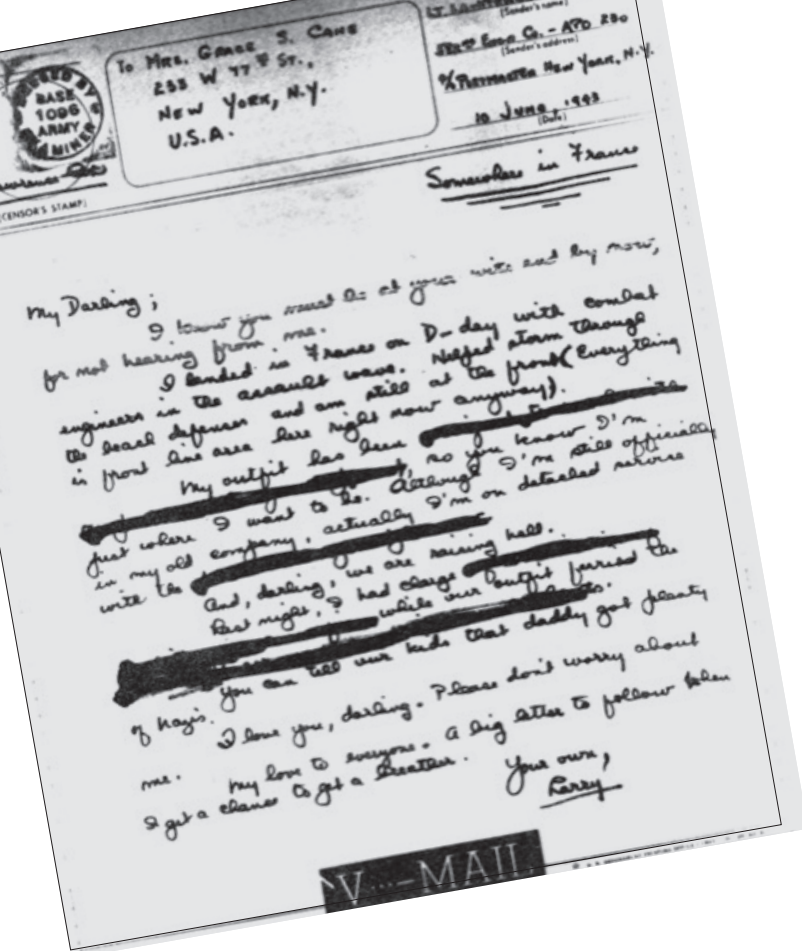 PASSED BY
BASE
1096
ARMY
EXAMINER
(CENSOR'S STAMP)
To MRS. GRACE S. CANE
233 W 77TH ST.,
NEW YORK, N.Y.
U.S.A.
LT
(Sender's name)
Co. - APO 230
(Sender's address)
c/o POSTMASTER NEW YORK, N.Y.
10 JUNE, 1943
(Date)
Somewhere in France
My Darling;
I know you must be at your wits end by now,
for not hearing from me.
I landed in France on D-day with combat
engineers in the assault wave. Helped storm through
the beach defenses and am still at the front (Everything
is front line area here right now anyway).
My outfit has been
, so you know I'm
just where I want to be. Although I'm still officially
in my old company, actually I'm on detached service
with the
And, darling, we are raising hell.
Last night, I had charge
while our outfit ferried the
You can tell our kids that daddy got plenty
of Nazis.
I love you, darling. Please don't worry about
me.
My love to everyone. A big letter to follow when
I get a chance to get a breather.
Your own,
Larry
V···—MAIL